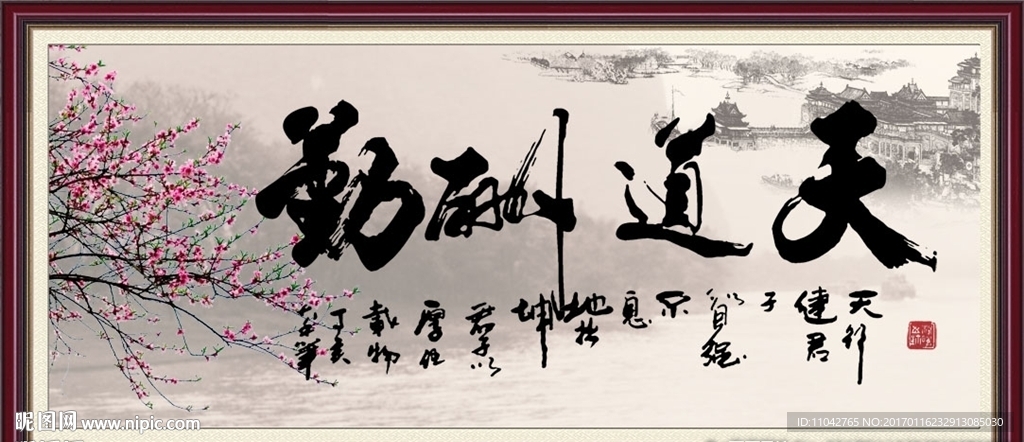 天道酬勤
天行
健君
子
以自强
不
息
地势
坤
君子以
厚德
載物
丁亥
昵图网 www.nipic.com
ID:11042765 NO:20170116232913085030